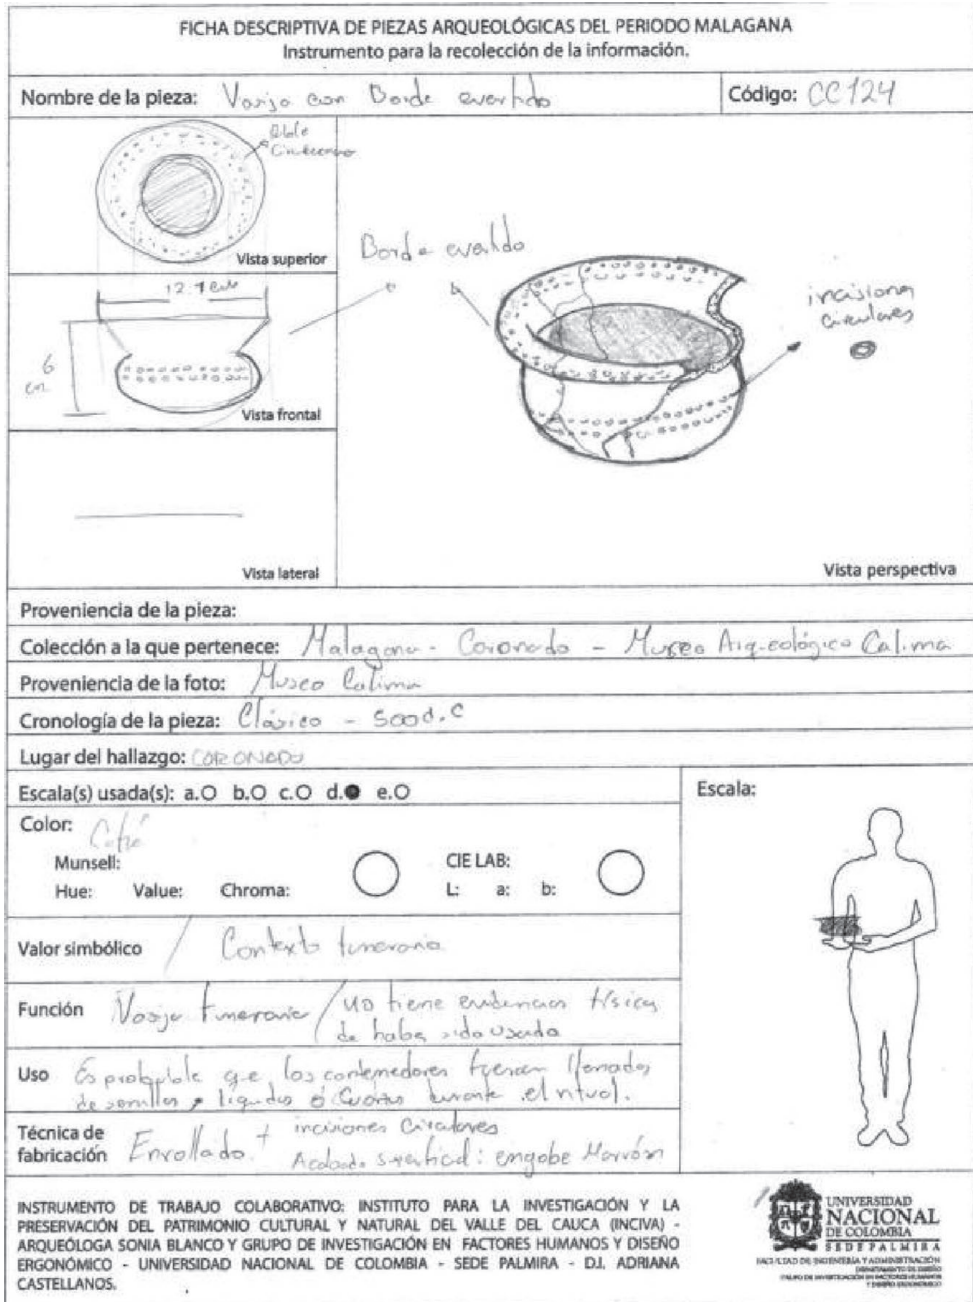 FICHA DESCRIPTIVA DE PIEZAS ARQUEOLÓGICAS DEL PERIODO MALAGANA
Instrumento para la recolección de la información.
Nombre de la pieza: Vasija con Borde evertido
Código: CC124
doble
Vista superior
12.1 cm
6
cm
Vista frontal
Vista lateral
Borde evertido
incisiones
circulares
Vista perspectiva
Proveniencia de la pieza:
Colección a la que pertenece: Malagana - Coronado - Museo Arqueológico Calima
Proveniencia de la foto: Museo Calima
Cronología de la pieza: Clásico - 500 d.C
Lugar del hallazgo: CORONADO
Escala(s) usada(s): a.O b.O c.O d.● e.O
Escala:
Color: Café
Munsell:
Hue: Value: Chroma:
CIE LAB:
L: a: b:
Valor simbólico / Contexto funerario
Función Vasija funeraria / no tiene evidencias físicas
de haber sido usada
Uso Es probable que los contenedores fueran llenados
de semillas, líquidos ó durante el ritual.
Técnica de
fabricación Enrollado + incisiones circulares
Acabado superficial: engobe Marrón
INSTRUMENTO DE TRABAJO COLABORATIVO: INSTITUTO PARA LA INVESTIGACIÓN Y LA
PRESERVACIÓN DEL PATRIMONIO CULTURAL Y NATURAL DEL VALLE DEL CAUCA (INCIVA) -
ARQUEÓLOGA SONIA BLANCO Y GRUPO DE INVESTIGACIÓN EN FACTORES HUMANOS Y DISEÑO
ERGONÓMICO - UNIVERSIDAD NACIONAL DE COLOMBIA - SEDE PALMIRA - D.I. ADRIANA
CASTELLANOS.
UNIVERSIDAD
NACIONAL
DE COLOMBIA
SEDE PALMIRA
FACULTAD DE INGENIERÍA Y ADMINISTRACIÓN
DEPARTAMENTO DE DISEÑO
GRUPO DE INVESTIGACIÓN EN FACTORES HUMANOS
Y DISEÑO ERGONÓMICO